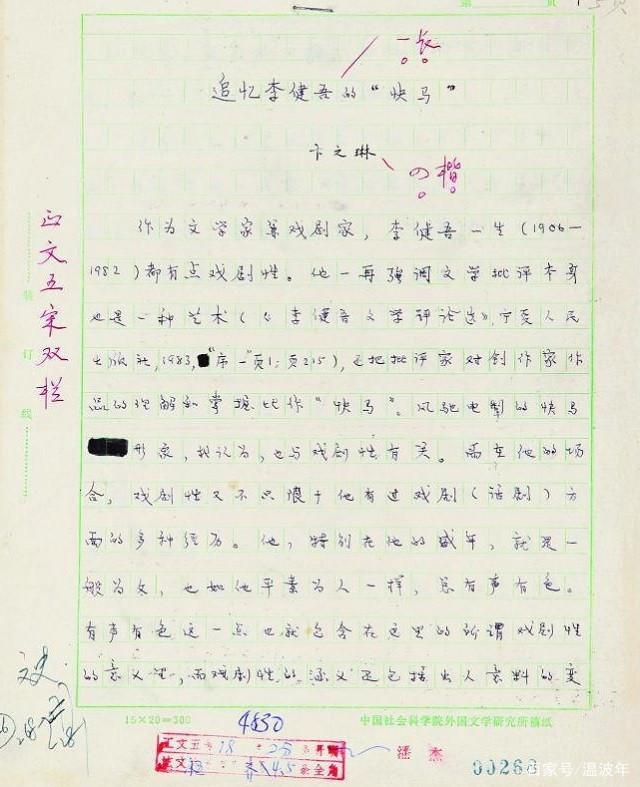 第 页
一长
追忆李健吾的“快马”
卞之琳
④楷
正文五宋双栏
作为文学家兼戏剧家，李健吾一生（1906—
1982）都有点戏剧性。他一再强调文学批评本身
也是一种艺术（《李健吾文学评论选》，宁夏人民
出版社，1983，“序一”页1；页215），还把批评家对创作家作
品的理解和掌握比作“快马”。风驰电掣的快马
形象，我认为，也与戏剧性有关。而在他的场
合，戏剧性又不只限于他有过戏剧（话剧）方
面的多种经历。他，特别在他的盛年，就是一
般为文，也如他平素为人一样，总有声有色。
有声有色这一点也就包含在这里的所谓戏剧性
的意义里，而戏剧性的涵义还包括出人意料的变
装
订
线
15×20=300
4830
中国社会科学院外国文学研究所稿纸
潘杰
00268
百家号/温波年